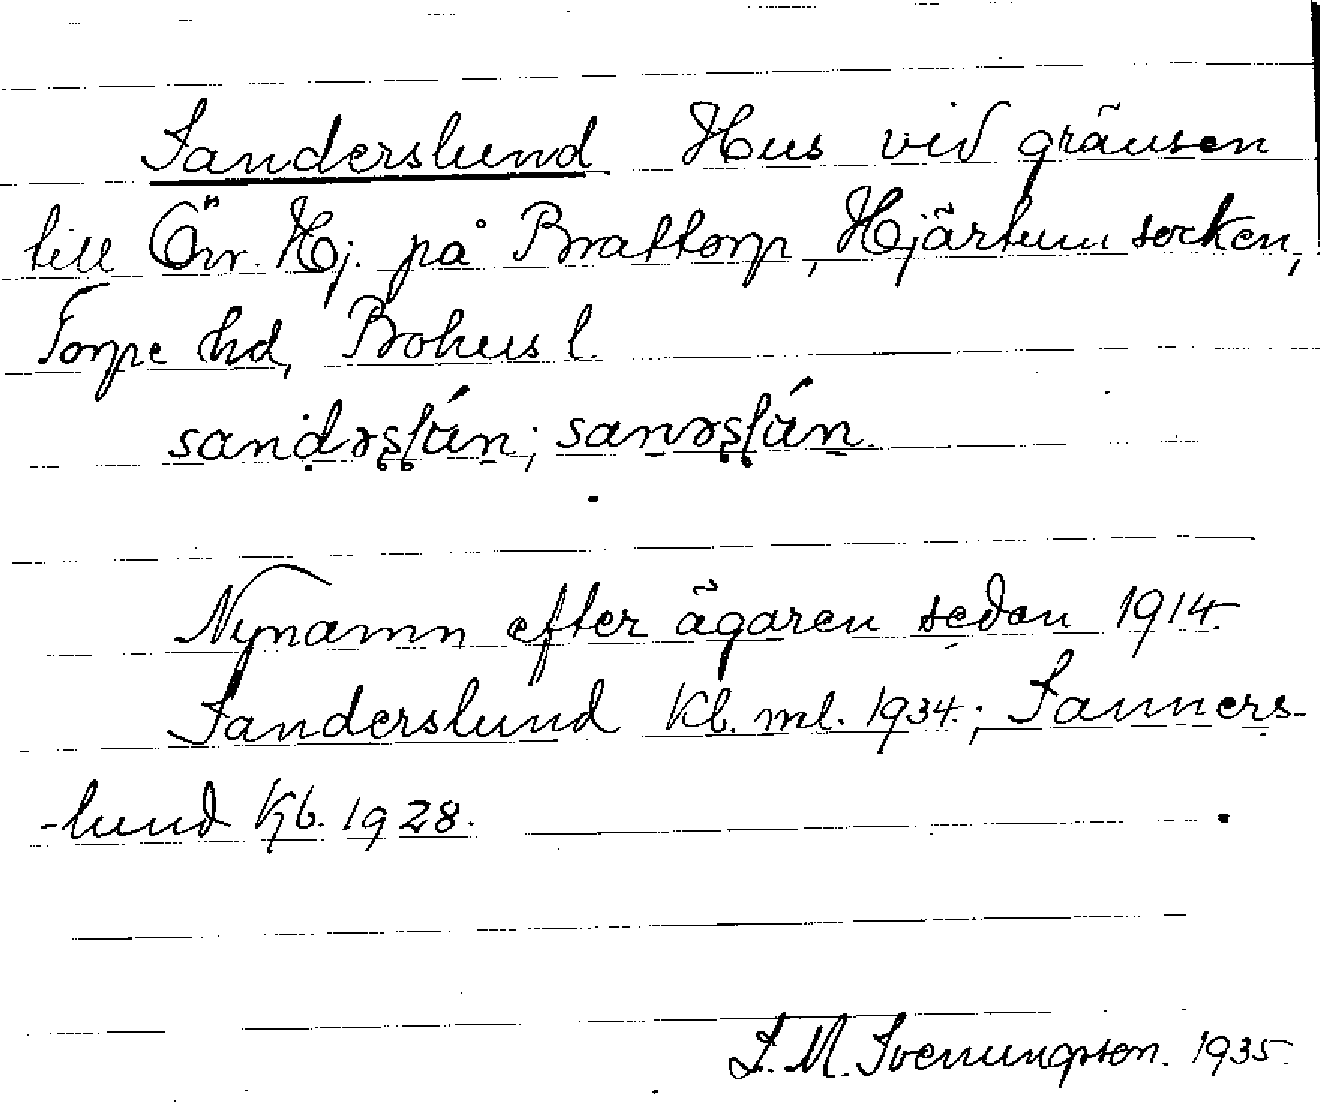 Sanderslund Hus vid gränsen
till Övr. Hj. på Brattorp, Hjärtum socken,
Torpe hd, Bohus l.
Nynamn efter ägaren sedan 1914.
Sanderslund Kb. ml. 1934.; Sanners-
-lund Kb. 1928.
S. M. Svenungson. 1935.